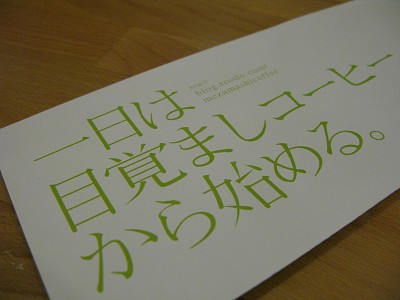 一日は
blog.roodo.com/
mezamashicoffee
目覚ましコーヒー
から始める。